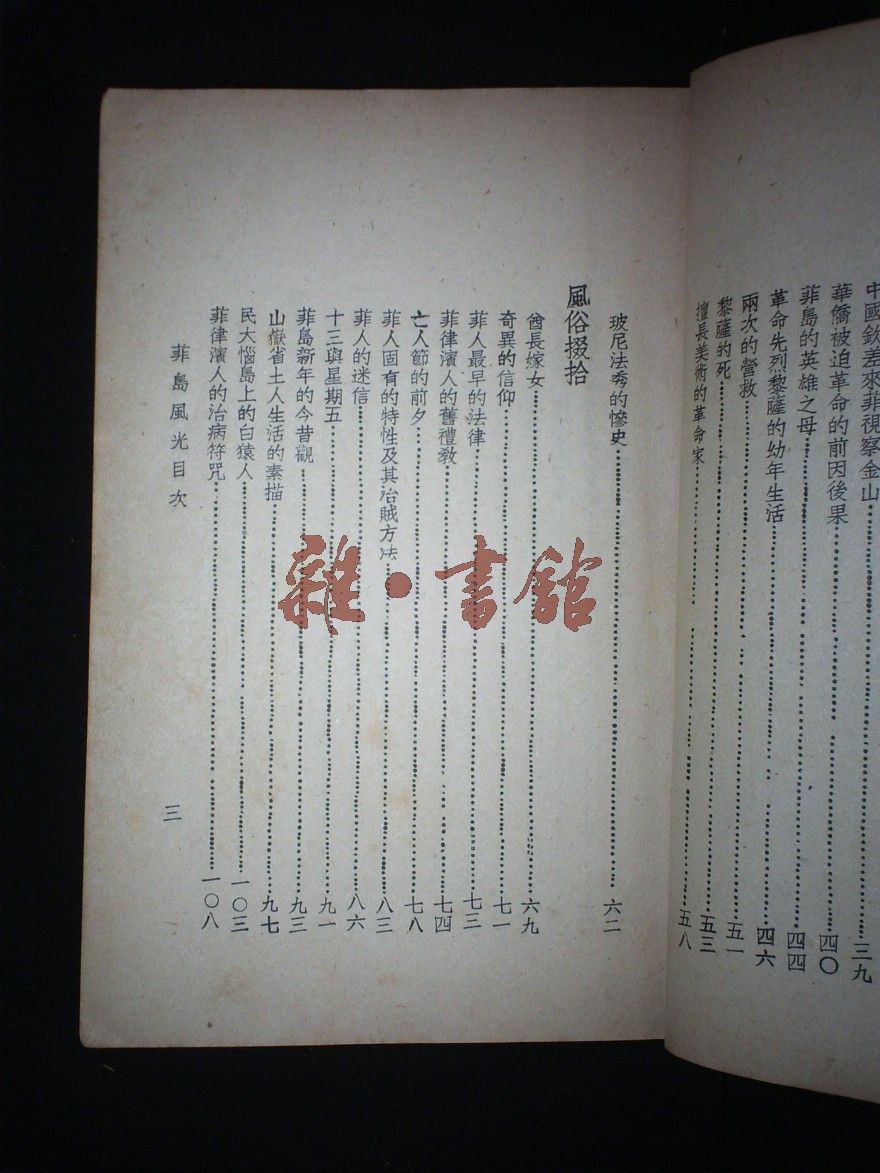 中國欽差來菲視察金山……三九
華僑被迫革命的前因後果……四〇
菲島的英雄之母……四四
革命先烈黎薩的幼年生活……四六
兩次的營救……五一
黎薩的死……五三
擅長美術的革命家……五八
玻尼法秀的慘史……六二
風俗掇拾
酋長嫁女……六九
奇異的信仰……七一
菲人最早的法律……七三
菲律濱人的舊禮教……七四
亡人節的前夕……七八
菲人固有的特性及其治賊方法……八三
菲人的迷信……八六
十三與星期五……九一
菲島新年的今昔觀……九三
山嶽省土人生活的素描……九七
民大惱島上的白猿人……一〇三
菲律濱人的治病符咒……一〇八
菲島風光目次
三
雜·書館